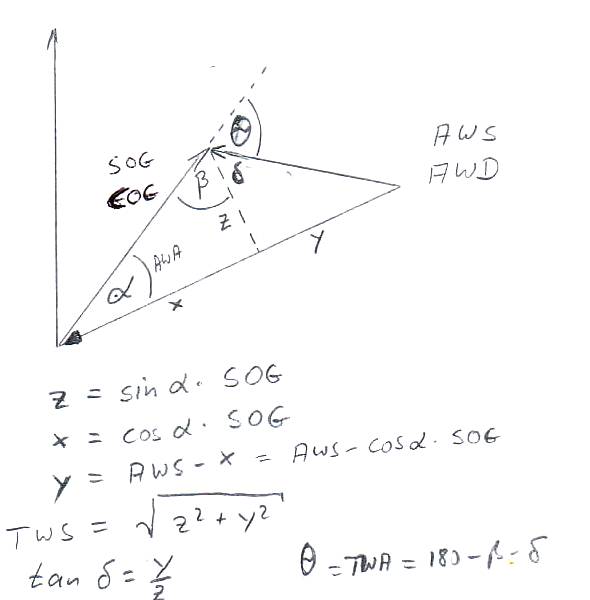 θ
SOG
COG
β δ
AWS
AWD
z
y
α AWA
x
z = sin α · SOG
x = cos α · SOG
y = AWS - x = AWS - cos α · SOG
TWS = √z² + y²
tan δ = y/z
θ = TWA = 180 - β - δ